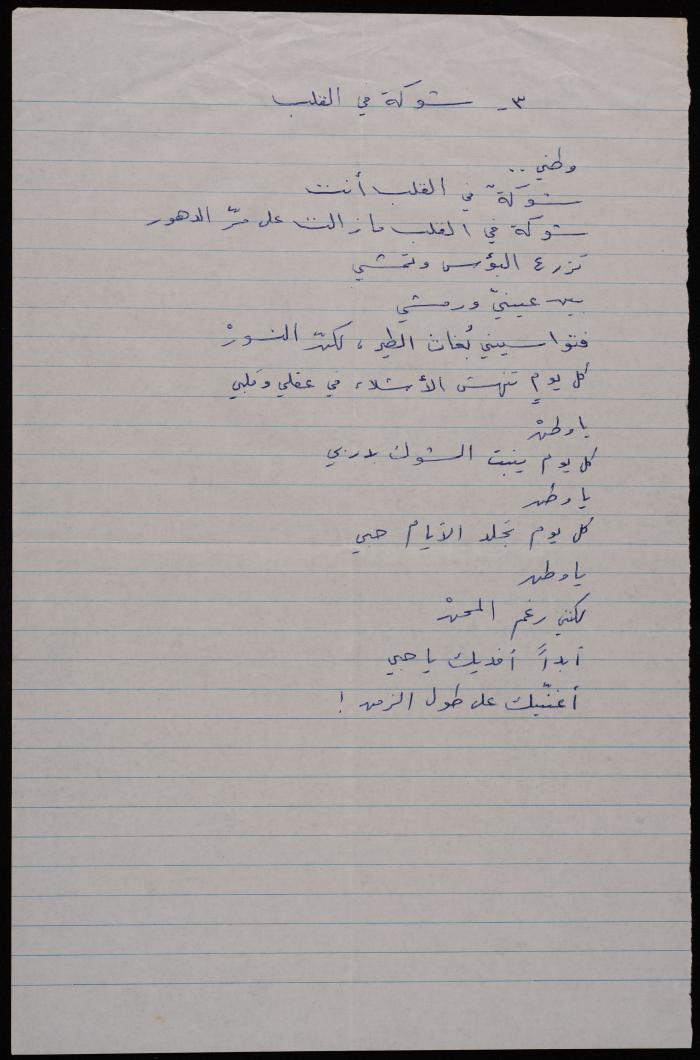 ٣- شوكة في القلب
وطني..
شوكةٌ في القلب أنت
شوكة في القلب ما زالت على مرّ الدهور
تزرع البؤس وتمشي
بين عينيّ ورمشي
فتواسيني بُغاث الطير، لكنّ النسورْ
كل يومٍ تنهش الأشلاء في عقلي وقلبي
يا وطنْ
كل يوم ينبت الشوك بدربي
يا وطن
كل يوم تجلد الأيام حبي
يا وطن
لكنني رغم المحنْ
أبداً أفديك يا حبي
أغنّيك على طول الزمن!